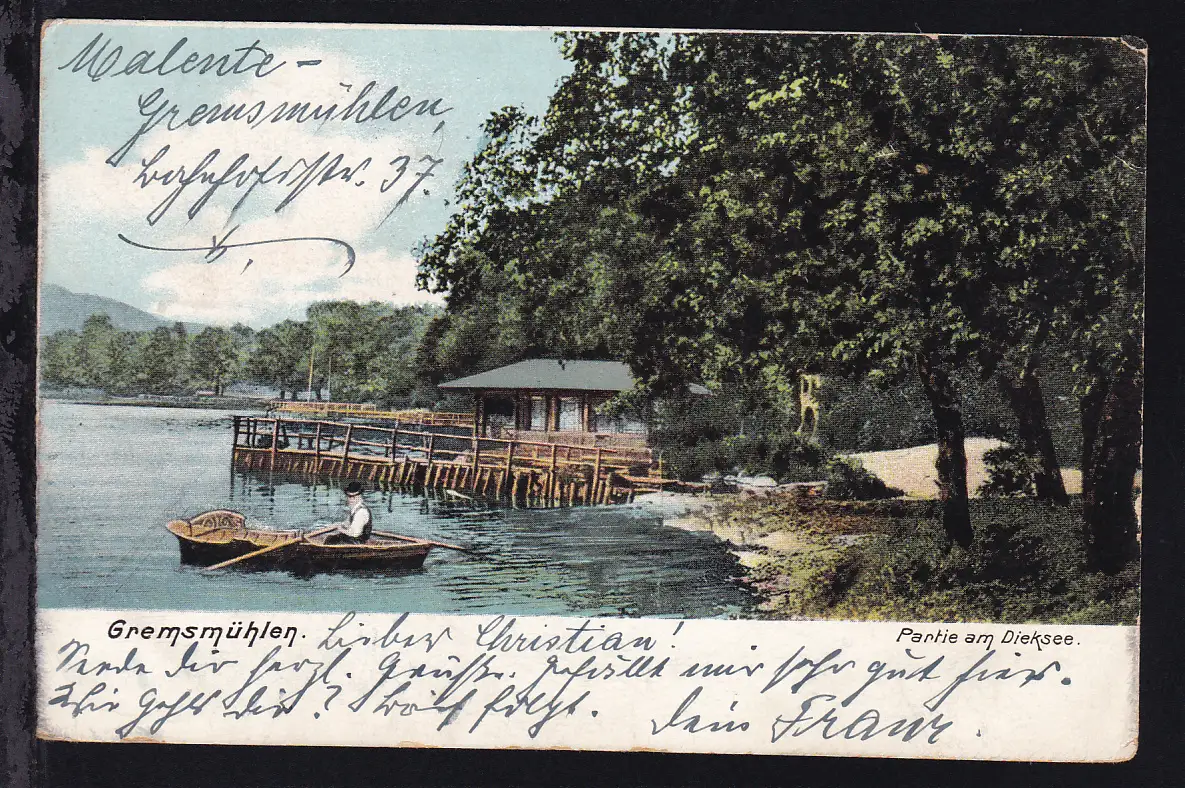 Malente-
Gremsmühlen,
Bahnhofstr. 37.
Gremsmühlen.
Partie am Dieksee.
Lieber Christian!
Sende dir herzl. Grüße. Gefällt mir sehr gut hier.
Wie gehts dir? folgt. Dein Franz.